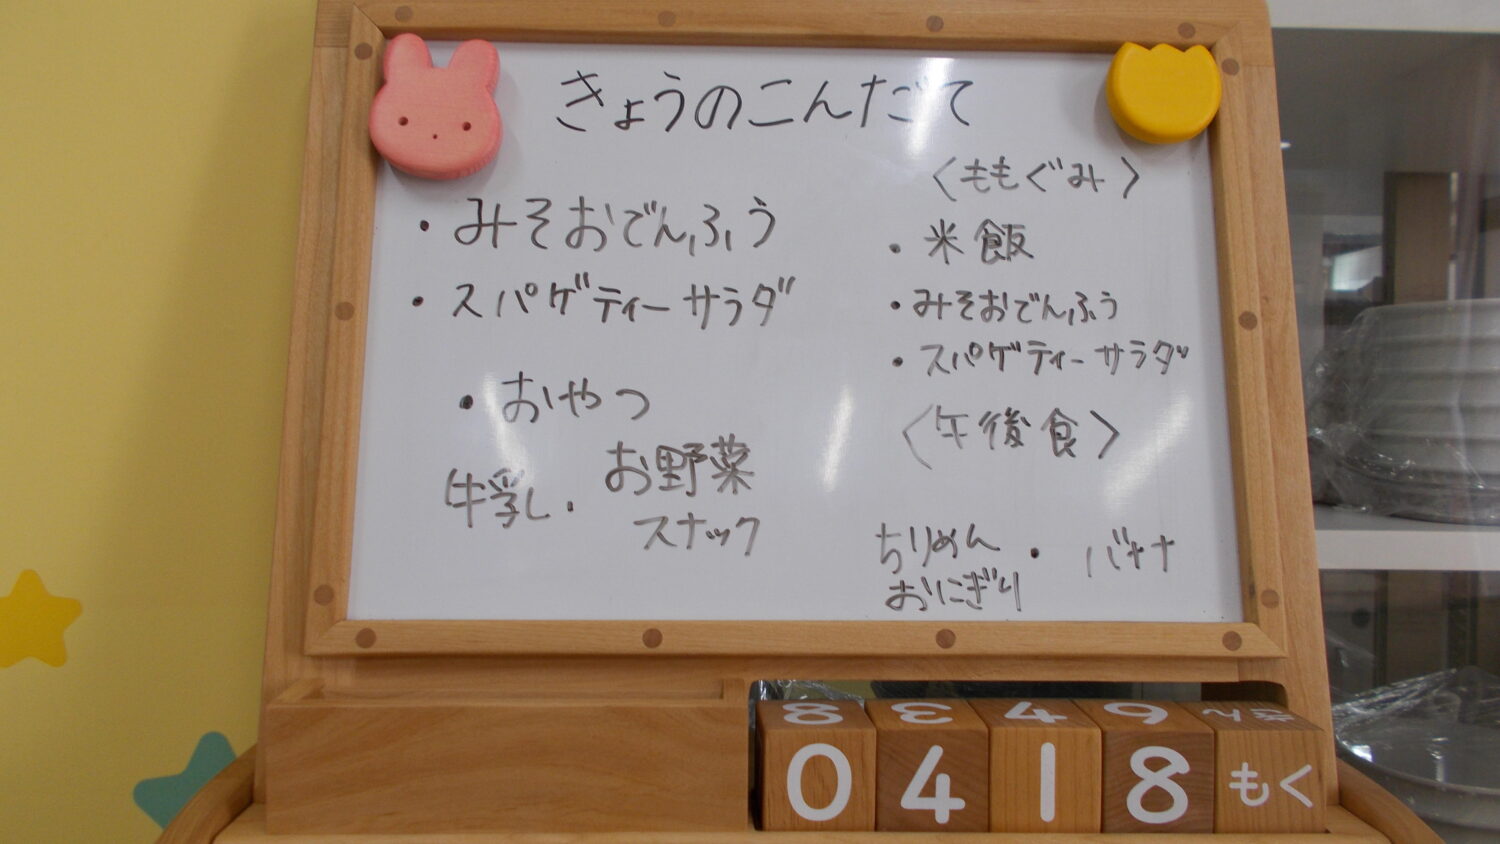 きょうのこんだて
・みそおでんふう
・スパゲティーサラダ
・おやつ
牛乳・お野菜
スナック
〈ももぐみ〉
・米飯
・みそおでんふう
・スパゲティーサラダ
〈午後食〉
ちりめん・バナナ
おにぎり
8 3 4 6
0 4 1 8 もく